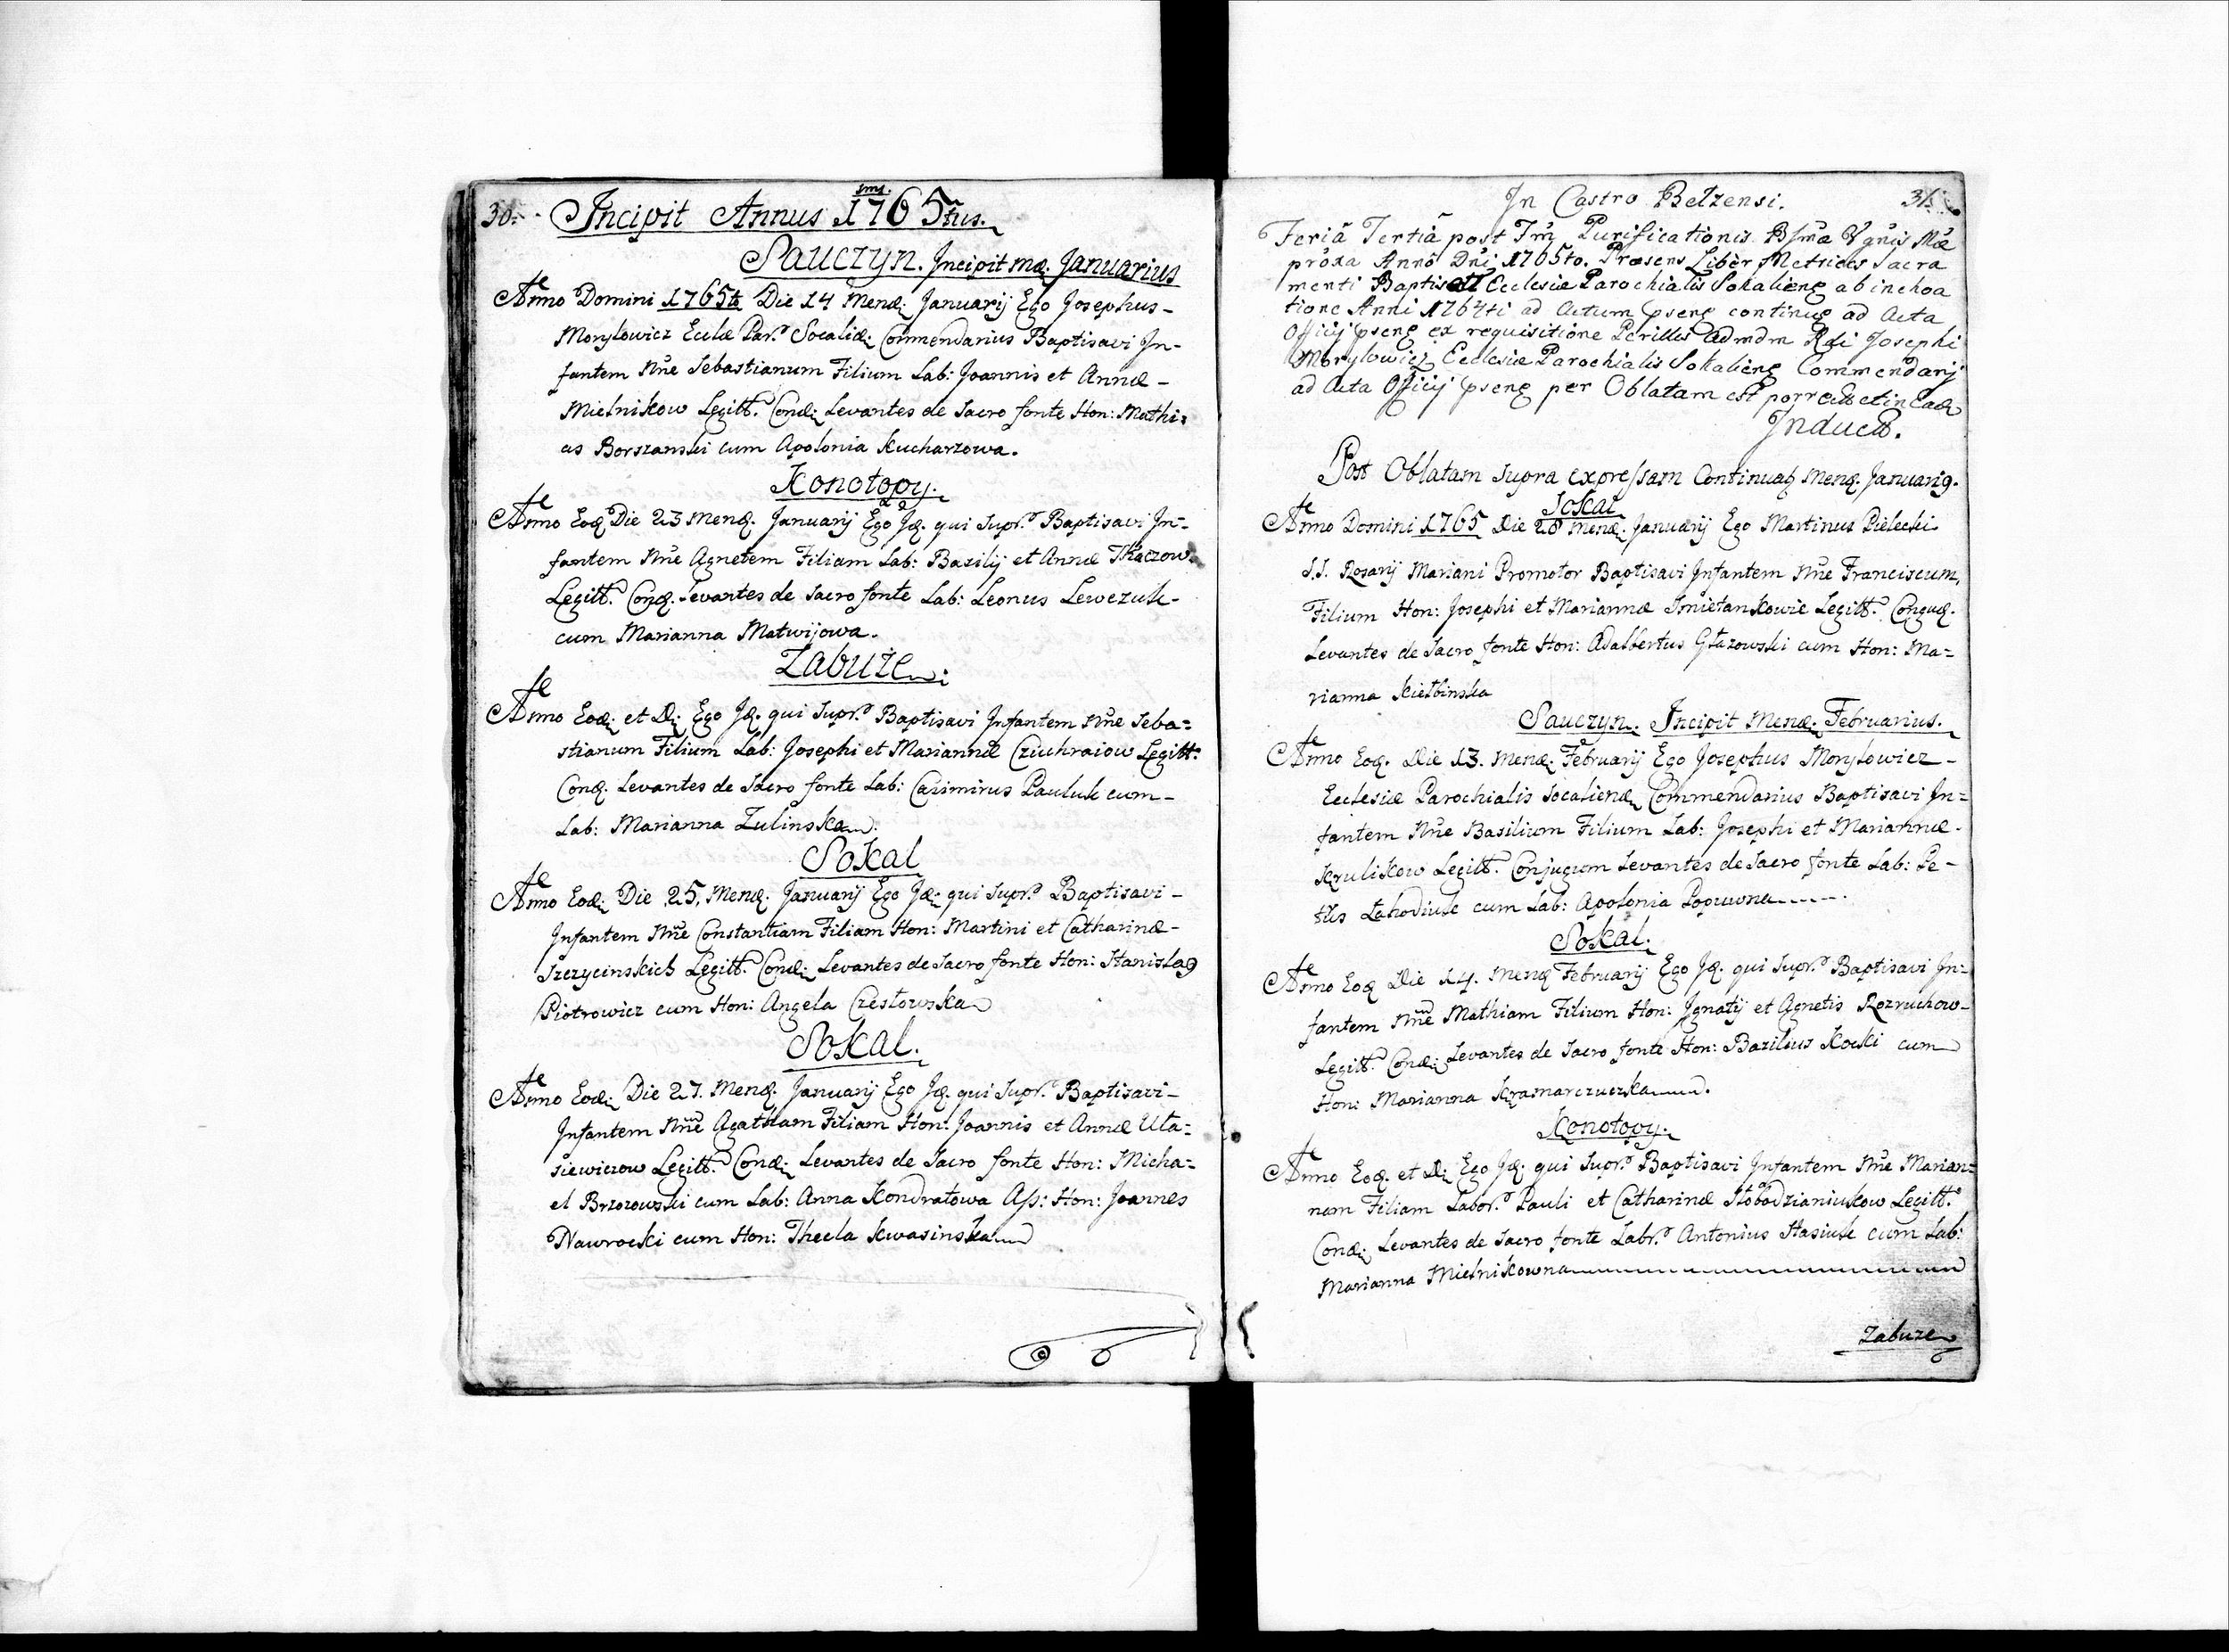 30. Incipit Annus 1765tus.
sms.
Sauczyn. Incipit mæ. Januarius
Anno Domini 1765to Die 14 Menq. Januarij Ego Josephus-
Morylowicz Eculæ Par. Socaliæ: Commendarius Baptisavi In-
fantem Nne Sebastianum Filium Lab: Joannis et Annæ-
Mielnikow Legitt. Conq: Levantes de Sacro fonte Hon: Mathi=
as Borszanski cum Apolonia Kucharzowa.
Konotopy.
Anno Eoq Die 23 Menq. Januarij Ego Jq. qui Supr. Baptisavi In=
fantem Nne Agnetem Filiam Lab: Basilij et Annæ Tkaczow.
Legitt. Conq. Levantes de Sacro fonte Lab: Leonus Lewczuk-
cum Marianna Matwijowa.
Zabuże:
Anno Eoq: et D: Ego Jq. qui Supr. Baptisavi Infantem Nne Seba=
stianum Filium Lab: Josephi et Mariannæ Cziuhraiow Legitt:
Conq. Levantes de Sacro fonte Lab: Casimirus Pauluk cum-
Lab: Marianna Zulinska.
Sokal
Anno Eoq: Die 25, Menq. Januarij Ego Jq: qui Supr. Baptisavi-
Infantem Nne Constantiam Filiam Hon: Martini et Catharinæ-
Szczycinskich Legitt. Conq: Levantes de Sacro fonte Hon: Stanislaq
Piotrowicz cum Hon: Angela Czestowska
Sokal.
Anno Eoq: Die 27. Menq. Januarij Ego Jq. qui Supr. Baptisavi-
Infantem Nne Agatham Filiam Hon: Joannis et Annæ Uła=
siewiczow Legitt. Conq: Levantes de Sacro fonte Hon: Micha=
el Brzozowski cum Lab: Anna Kondratowa Ass: Hon: Joannes
Nawrocki cum Hon: Thecla Kwasinska
In Castro Belzensi. 31.
Feriâ Tertiâ post Fm Purificationis Bsma Vgnis Mæ
proxa Anno Dni 1765to. Præsens Liber Metrices Sacra
menti Baptis Ecclesiæ Parochialis Sokalieng ab inchoa
tione Anni 1764ti ad Actum pseng continug ad Acta
Officij pseng ex requisitione Perillis Admdm Rdi Josephi
Morylowicz Ecclesiæ Parochialis Sokalieng Commendarij
ad Acta Officij pseng per Oblatam est porrect et in Eadē
Induct.
Post Oblatam supra expressam Continuaq Menq. Januarig.
Sokal
Anno Domini 1765 Die 28 Menq: Januarij Ego Martinus Bielecki
S.S. Rosarij Mariani Promotor Baptisavi Infantem Nne Franciscum,
Filium Hon: Josephi et Mariannæ Smietankowie Legitt. Conguq.
Levantes de Sacro fonte Hon: Adalbertus Głazowski cum Hon: Ma=
rianna Kiełbinska
Sauczyn. Incipit Menq: Februarius.
Anno Eoq. Die 13. Menq: Februarij Ego Josephus Morylowicz-
Ecclesiæ Parochialis Socalienq Commendarius Baptisavi In=
fantem Nne Basilium Filium Lab: Josephi et Mariannæ-
Krulikow Legitt. Conjugum Levantes de Sacro fonte Lab: Pe-
trus Łahodiuk cum Lab: Apolonia Popuwna
Sokal.
Anno Eoq Die 14. Menq Februarij Ego Jq. qui Supr. Baptisavi In=
fantem Nne Mathiam Filium Hon: Ignatij et Agnetis Rozruchow-
Legitt. Conq: Levantes de Sacro fonte Hon: Basilius Kocki cum
Hon: Marianna Kramarczuczka.
Konotopy.
Anno Eoq. et D: Ego Jq: qui Supr. Baptisavi Infantem Nne Marian=
nam Filiam Labor. Pauli et Catharinæ Słobodzianiukow Legitt.
Conq: Levantes de Sacro fonte Labr. Antonius Stasiuk cum Lab:
Marianna Mielnikowna
Zabuze